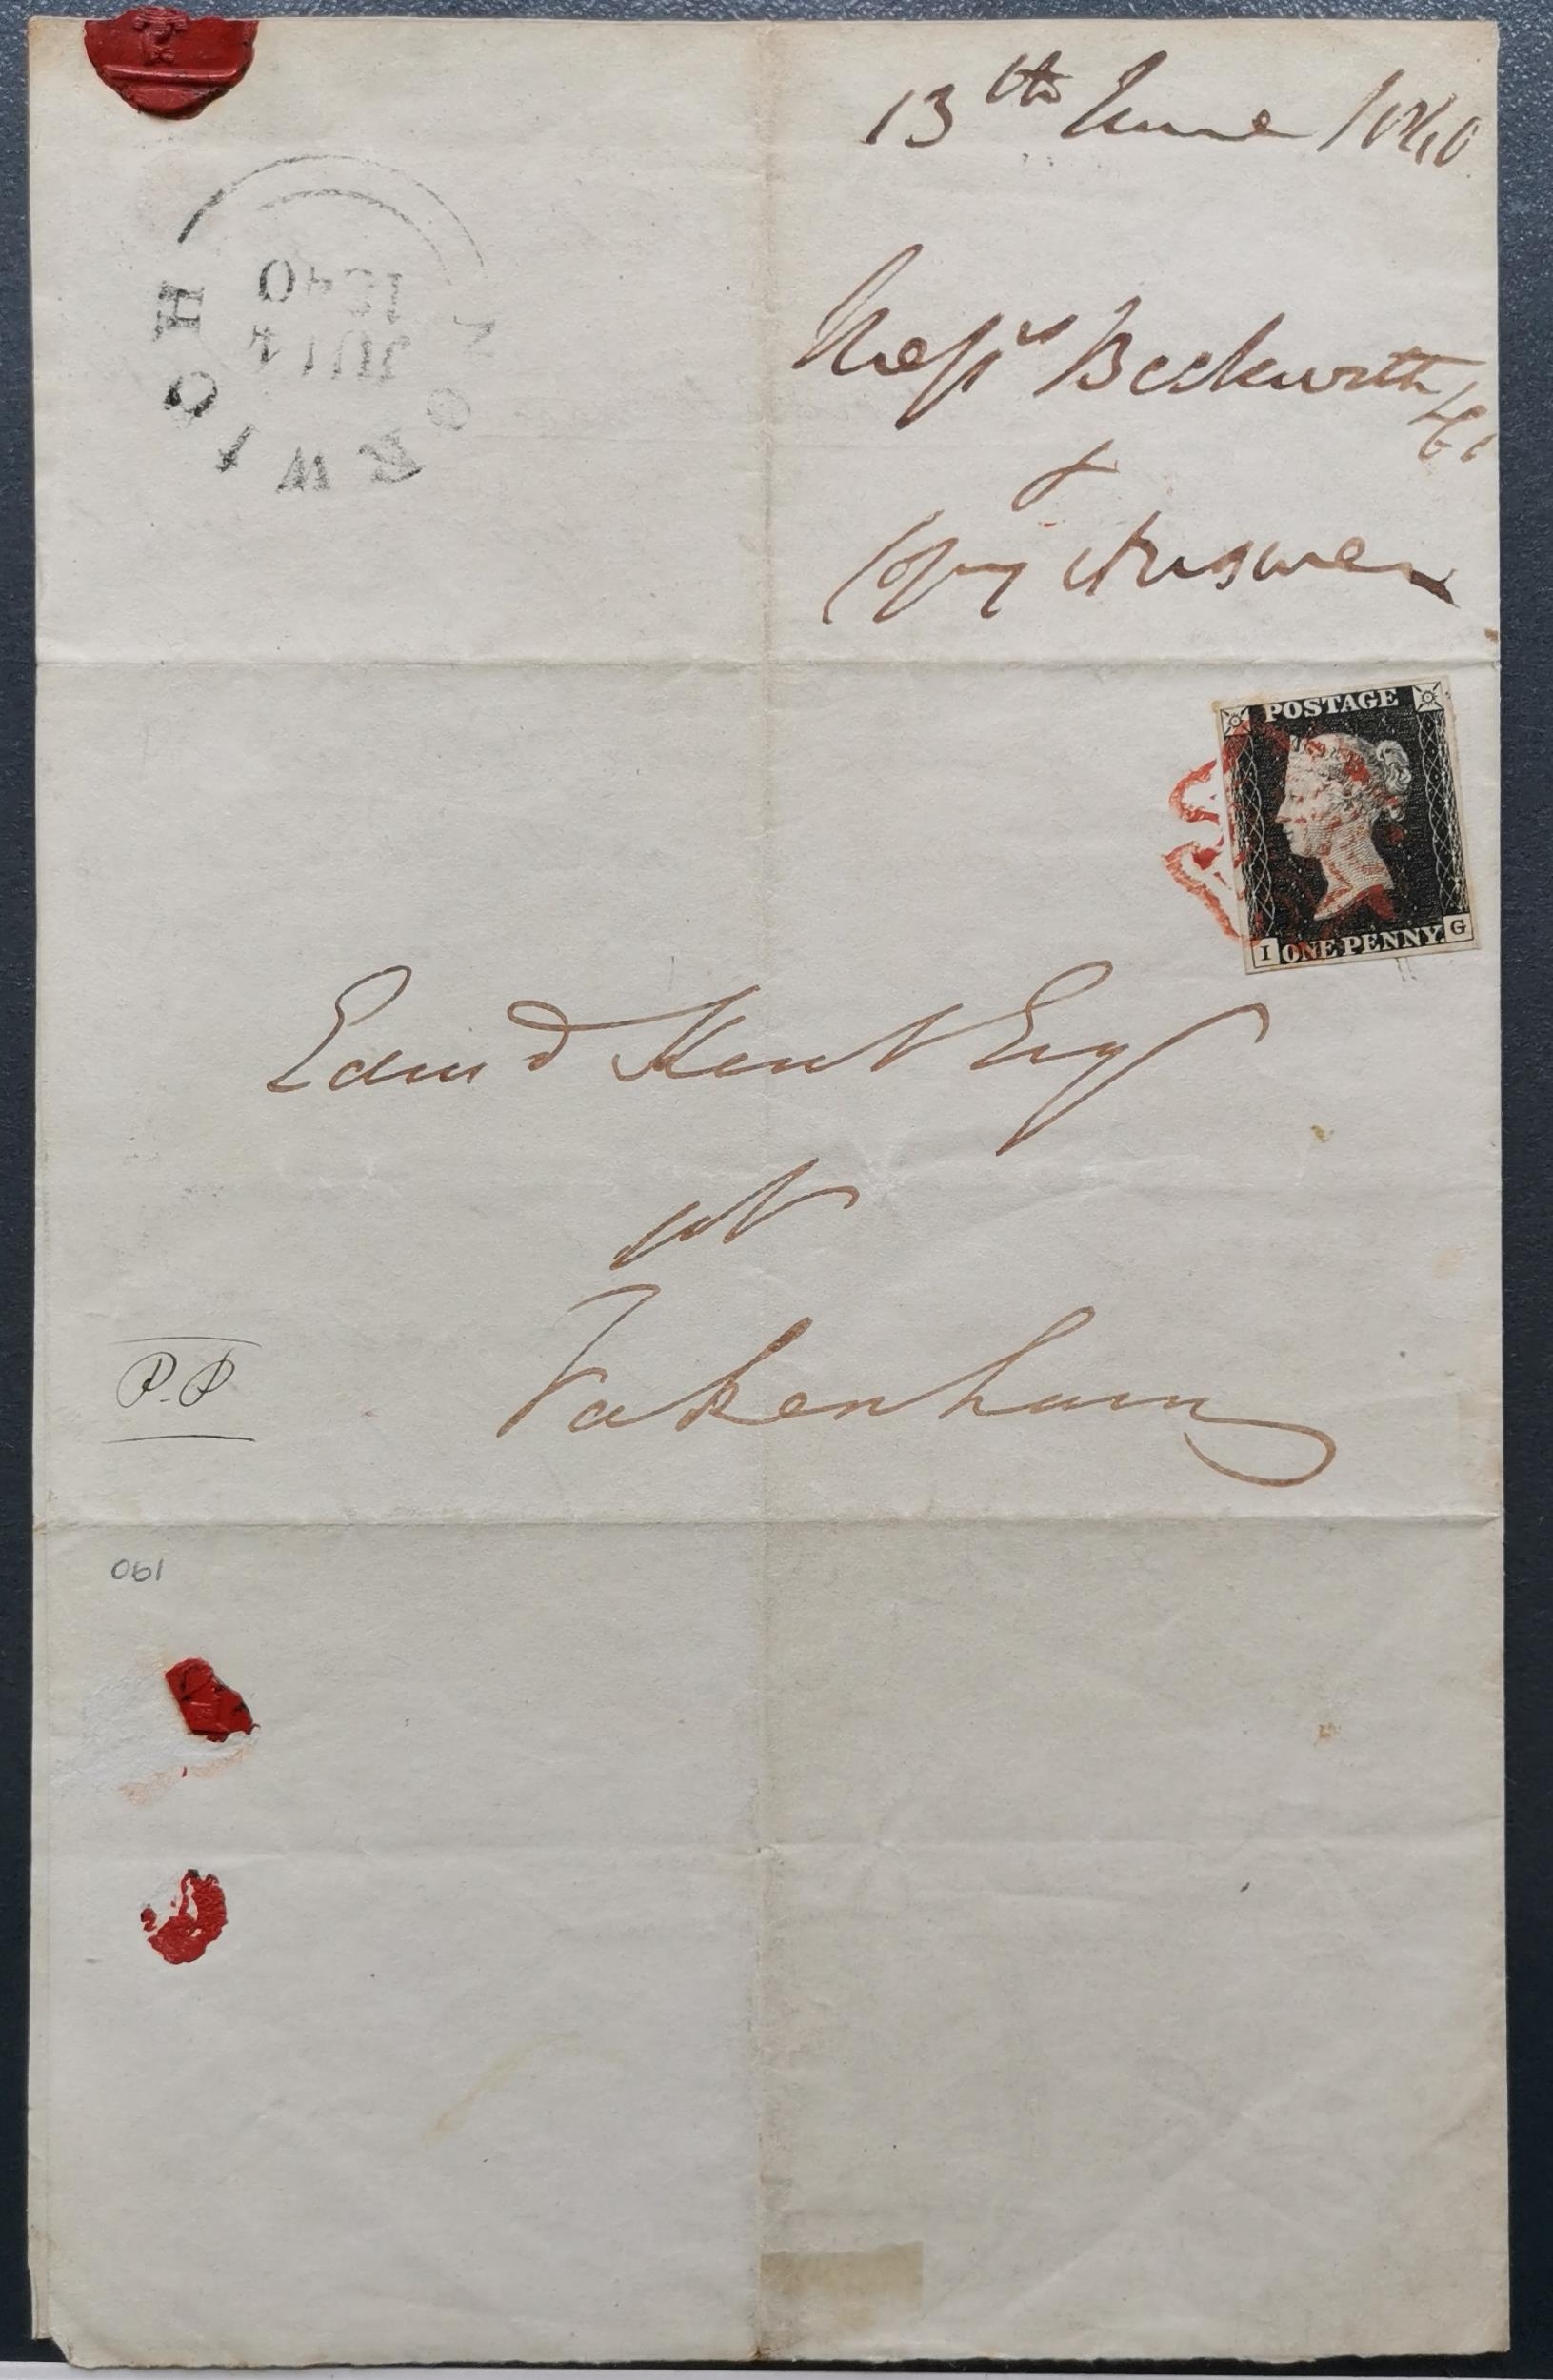 13th June 1840
Messrs Beckwith
&
Copy Answer
NORWICH
JU 14
1840
POSTAGE
I ONE PENNY. G
Edmd Kent Esq
at
Fakenham
P.P
190